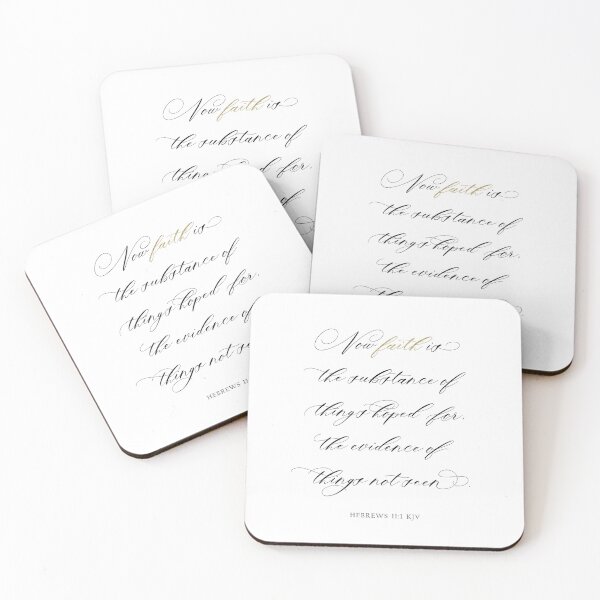 Now faith is
the substance of
things hoped for,
of
Now faith is
the substance of
things hoped for,
the evidence of
Now faith is
the substance of
things hoped for,
the evidence of
things not seen
HEBREWS 11
Now faith is
the substance of
things hoped for,
the evidence of
things not seen.
HEBREWS 11:1 KJV